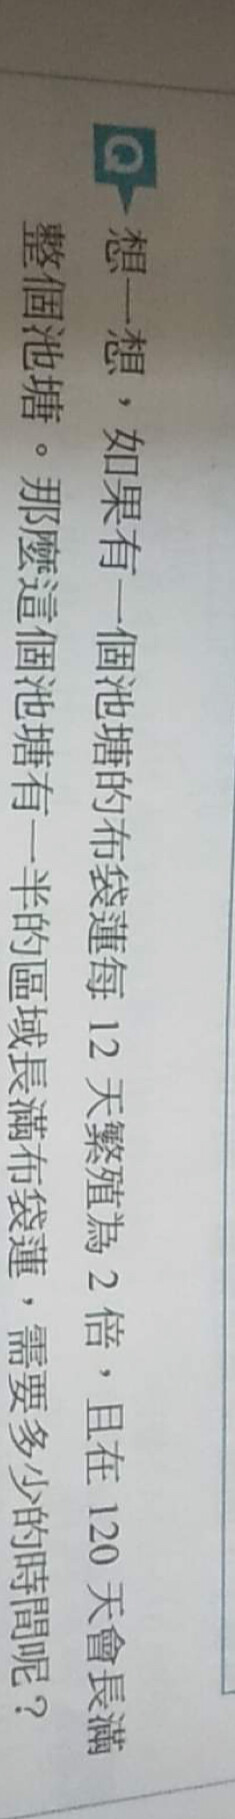 Q 想一想，如果有一個池塘的布袋蓮每 12 天繁殖為 2 倍，且在 120 天會長滿
整個池塘。那麼這個池塘有一半的區域長滿布袋蓮，需要多少的時間呢？